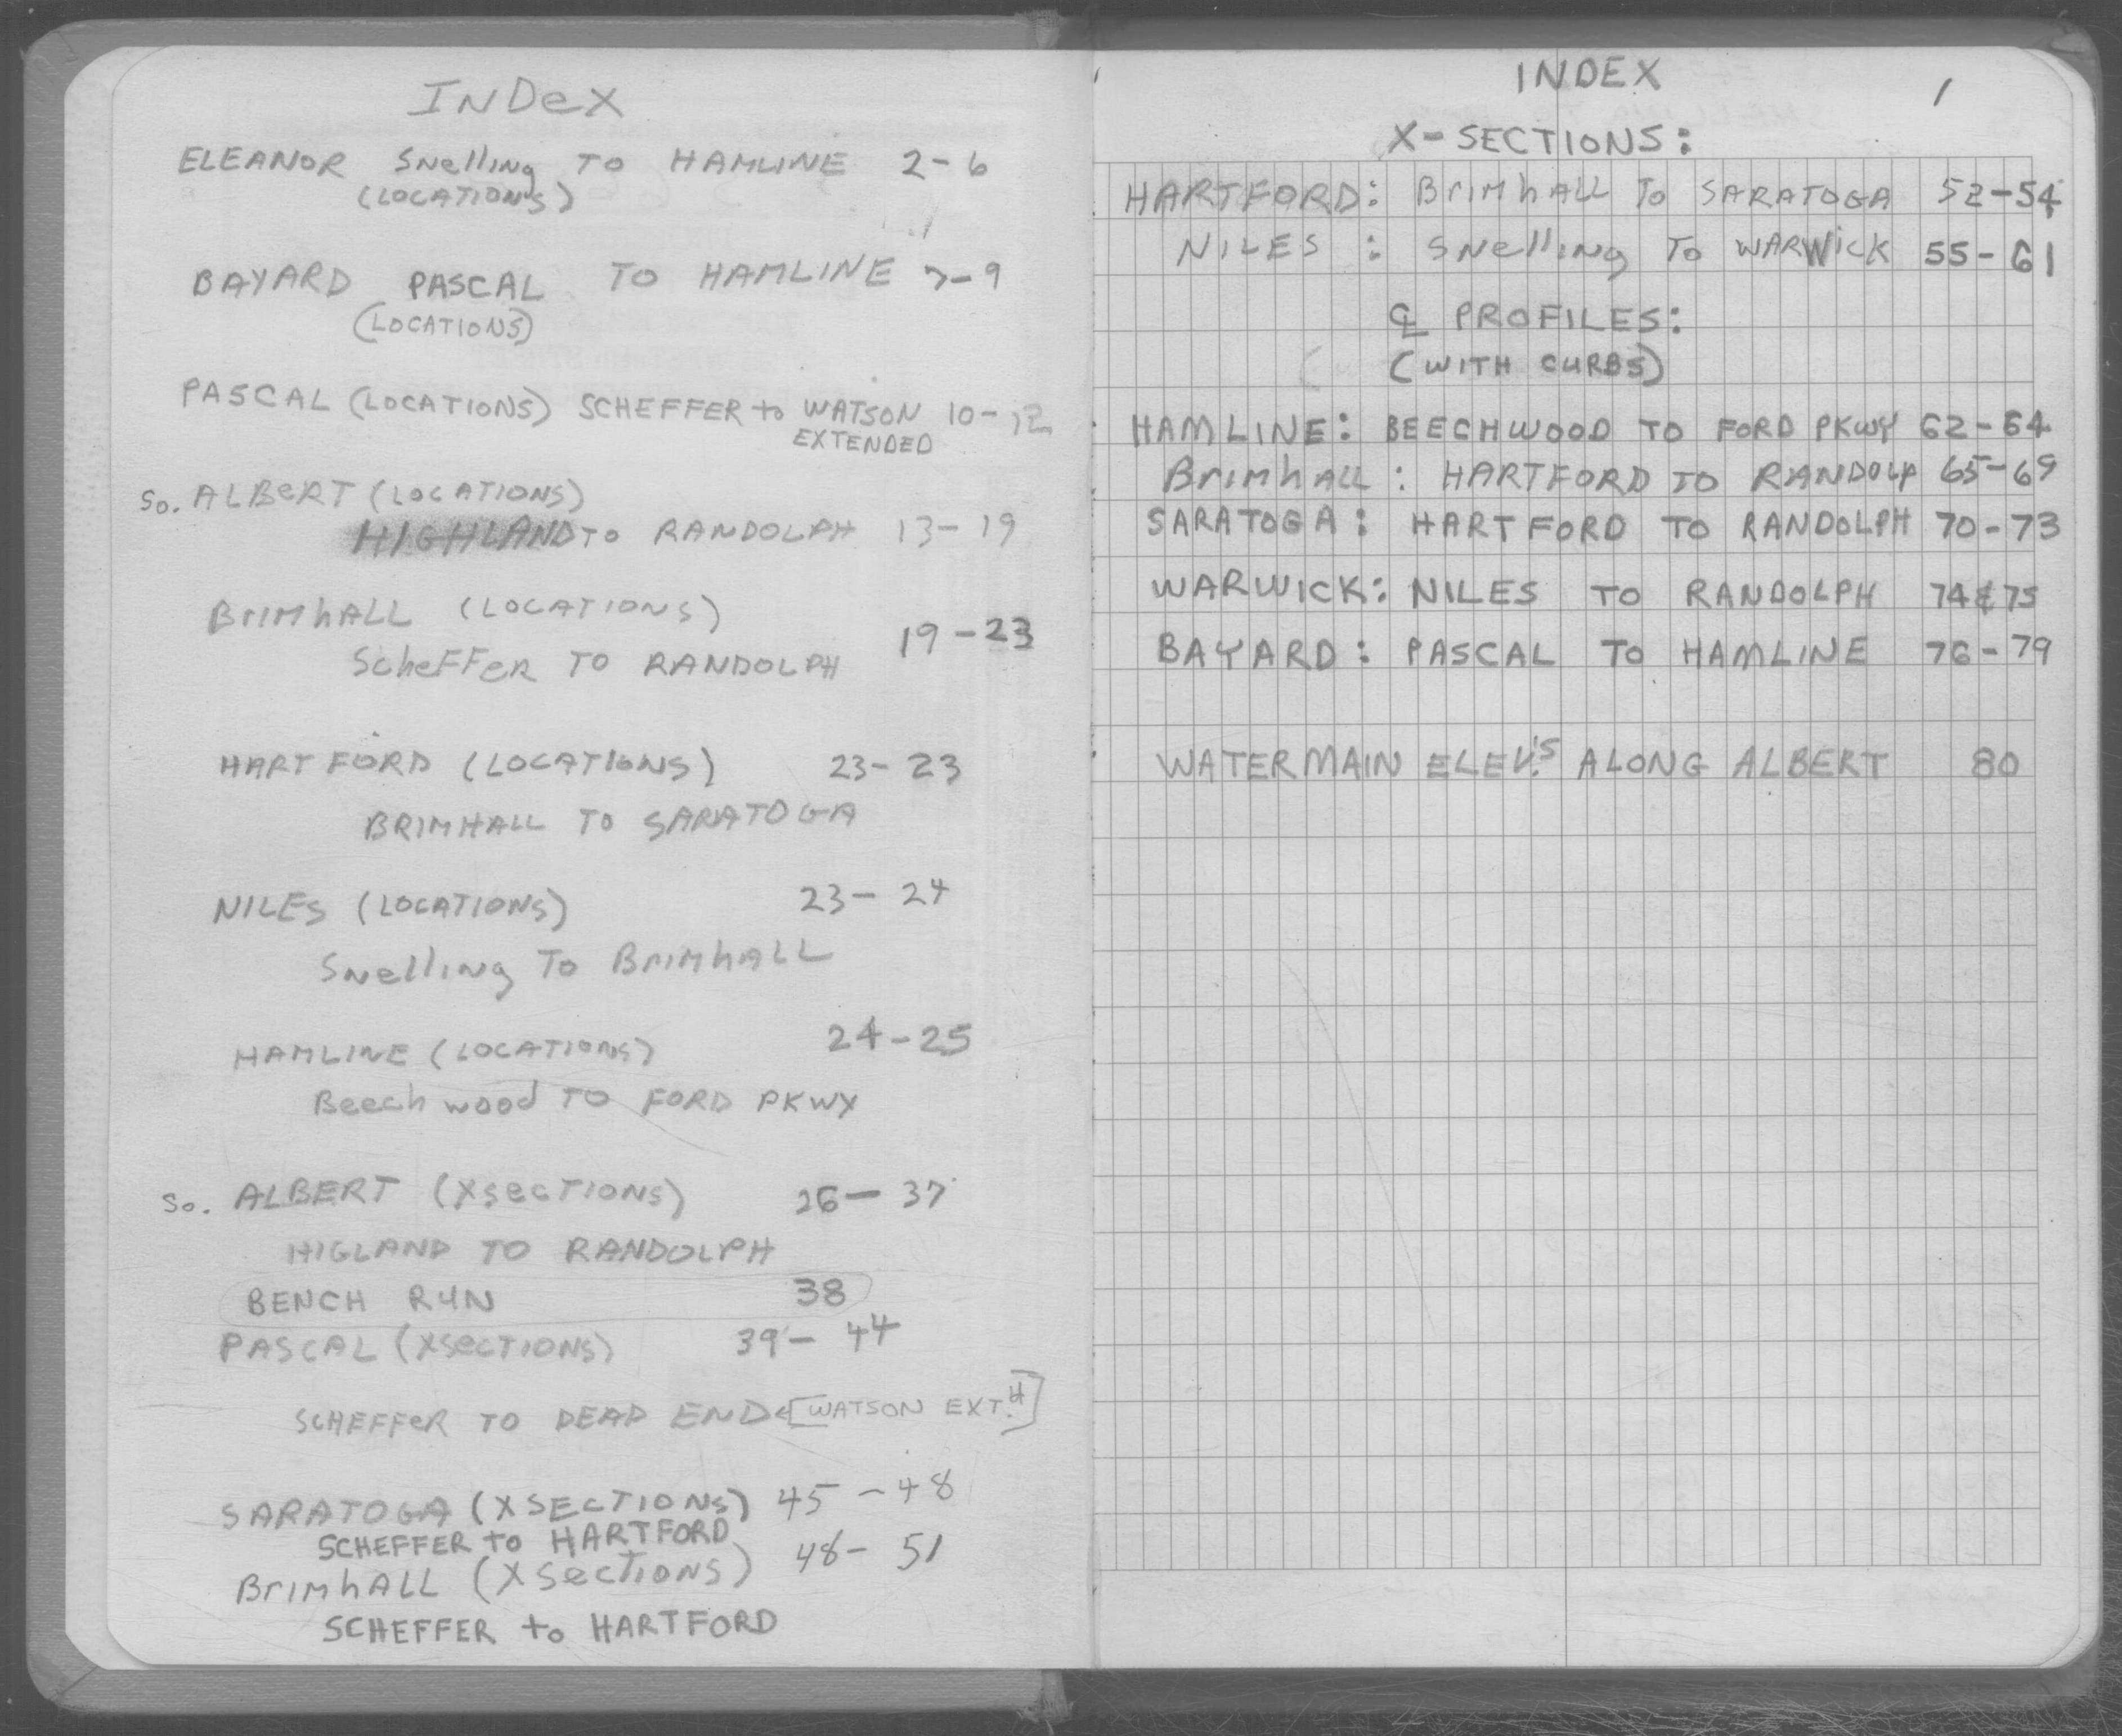 INDeX
ELEANOR Snelling TO HAMLINE 2-6
(LOCATIONS)
BAYARD PASCAL TO HAMLINE 7-9
(LOCATIONS)
PASCAL (LOCATIONS) SCHEFFER to WATSON 10-12
EXTENDED
So. ALBeRT (LOCATIONS)
HIGHLAND TO RANDOLPH 13-19
BrimhALL (LOCATIONS)
19-23
ScheFFeR TO RANDOLPH
HARTFORD (LOCATIONS) 23-23
BRIMHALL TO SARATOGA
NILES (LOCATIONS) 23-24
Snelling To BrimhALL
HAMLINE (LOCATIONS) 24-25
Beechwood TO FORD PKWY
So. ALBERT (XsecTIONS) 26-37
HIGLAND TO RANDOLPH
BENCH RUN 38
PASCAL (XSecTIONS) 39-44
SCHEFFeR TO DEAD END [WATSON EXT.'d]
SARATOGA (XSECTIONS) 45-48
SCHEFFER to HARTFORD
BrimhALL (XSecTIONS) 48-51
SCHEFFER to HARTFORD
INDEX 1
X-SECTIONS:
HARTFORD: BrimhALL To SARATOGA 52-54
NILES : Snelling To WARWicK 55-61
℄ PROFILES:
(WITH CURBS)
HAMLINE: BEECHWOOD TO FORD PKWY 62-64
BrimhALL : HARTFORD TO RANDOLP 65-69
SARATOGA: HARTFORD TO RANDOLPH 70-73
WARWICK: NILES TO RANDOLPH 74 & 75
BAYARD: PASCAL TO HAMLINE 76-79
WATERMAIN ELEV.'S ALONG ALBERT 80